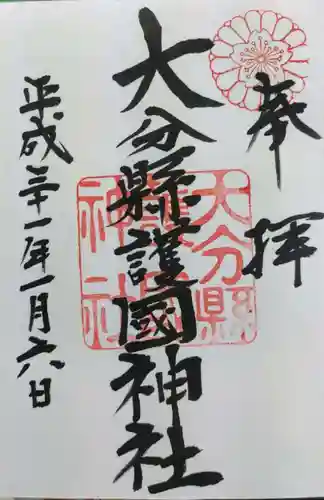 奉拝
大分縣護國神社
大分縣護國神社
平成三十一年一月六日